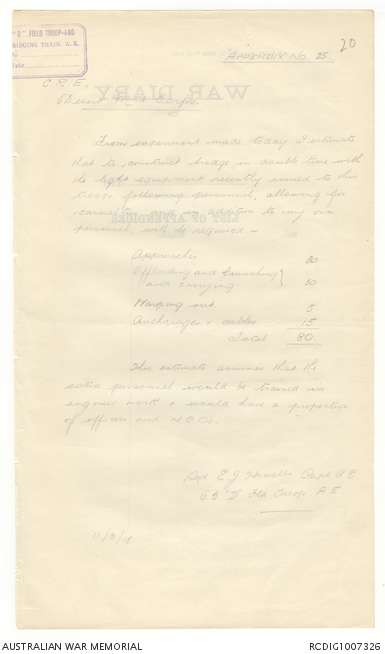 "D" FIELD TROOP AND
BRIDGING TRAIN, A.E.
No.
Date
20
APPENDIX No. 25.
C.R.E.
Desert Mtd Corps.
From experiment made today I estimate
that to construct bridge in double time with
the light equipment recently issued to this
troop following personnel, allowing for
casualties, and in addition to my own
personnel, will be required:-
Approaches
Offloading and launching
and carrying 50
Warping out 5
Anchorages & cables 15
Total 80
This estimate assumes that the
extra personnel would be trained in
engineer work & would have a proportion
of officers and N.C.Os.
Capt A E
O.C. "D" Fld Troop A E
WAR DIARY
LIST OF APPENDICES
AUSTRALIAN WAR MEMORIAL
RCDIG1007326